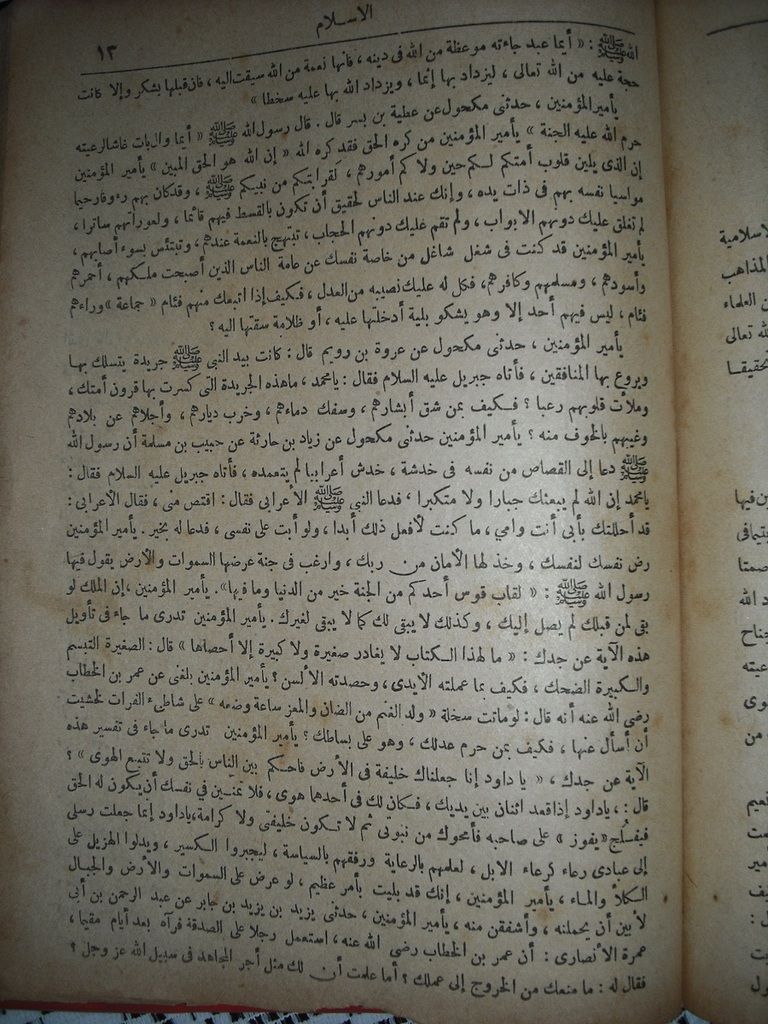 الاسلام
١٣
الله ﷺ : « أيما عبد جاءته موعظة من الله فى دينه ، فانها نعمة من الله سيقت اليه ، فان قبلها بشكر وإلا كانت
حجة عليه من الله تعالى ، ليزداد بها إثما ، ويزداد الله بها عليه سخطا »
يأمير المؤمنين ، حدثنى مكحول عن عطية بن بسر قال . قال رسول الله ﷺ « أيما وال بات غاشا لرعيته
حرم الله عليه الجنة » يأمير المؤمنين من كره الحق فقد كره الله « إن الله هو الحق المبين » يأمير المؤمنين
إن الذى يلين قلوب أمتكم لكم حين ولا كم أمورهم ، لقرابتكم من نبيكم ﷺ ، وقد كان بهم رءوفا رحيما
مواسيا نفسه بهم فى ذات يده ، وإنك عند الناس لحقيق أن تكون بالقسط فيهم قائما ، ولعوراتهم ساترا ،
لم تغلق عليك دونهم الابواب ، ولم تقم عليك دونهم الحجاب ، تبتهج بالنعمة عندهم ، وتبتئس بسوء أصابهم ،
يأمير المؤمنين قد كنت فى شغل شاغل من خاصة نفسك عن عامة الناس الذين أصبحت ملكهم ، أحمرهم
وأسودهم ، ومسلمهم وكافرهم ، فكل له عليك نصيبه من العدل ، فكيف إذا اتبعك منهم فئام « جماعة » وراءهم
فئام ، ليس فيهم أحد إلا وهو يشكو بلية أدخلتها عليه ، أو ظلامة سقتها اليه ؟
يأمير المؤمنين ، حدثنى مكحول عن عروة بن رويم قال : كانت بيد النبى ﷺ جريدة يتسلك بها
ويروع بها المنافقين ، فأتاه جبريل عليه السلام فقال : يامحمد ، ماهذه الجريدة التى كسرت بها قرون أمتك ،
وملأت قلوبهم رعبا ؟ فكيف بمن شق أبشارهم ، وسفك دماءهم ، وخرب ديارهم ، وأجلاهم عن بلادهم
وغيبهم بالخوف منه ؟ يأمير المؤمنين حدثنى مكحول عن زياد بن حارثة عن حبيب بن مسلمة أن رسول الله
ﷺ دعا إلى القصاص من نفسه فى خدشة ، خدش أعرابيا لم يتعمده ، فأتاه جبريل عليه السلام فقال :
يامحمد إن الله لم يبعثك جبارا ولا متكبرا ، فدعا النبى ﷺ الأعرابى فقال : اقتص منى ، فقال الأعرابى :
قد أحللتك بأبى أنت وامى ، ما كنت لأفعل ذلك أبدا ، ولو أبت على نفسى ، فدعا له بخير . يأمير المؤمنين
رض نفسك لنفسك ، وخذ لها الأمان من ربك ، وارغب فى جنة عرضها السموات والأرض يقول فيها
رسول الله ﷺ : « لقاب قوس أحدكم من الجنة خير من الدنيا وما فيها » . يأمير المؤمنين ، إن الملك لو
بقى لمن قبلك لم يصل إليك ، وكذلك لا يبقى لك كما لا يبقى لغيرك . يأمير المؤمنين تدرى ما جاء فى تأويل
هذه الآية عن جدك : « ما لهذا الكتاب لا يغادر صغيرة ولا كبيرة إلا أحصاها » قال : الصغيرة التبسم
والكبيرة الضحك ، فكيف بما عملته الأيدى ، وحصدته الألسن ؟ يأمير المؤمنين بلغنى عن عمر بن الخطاب
رضى الله عنه أنه قال : لو ماتت سخلة « ولد الغنم من الضان والمعز ساعة وضعه » على شاطىء الفرات لخشيت
أن أسأل عنها ، فكيف بمن حرم عدلك ، وهو على بساطك ؟ يأمير المؤمنين تدرى ما جاء فى تفسير هذه
الآية عن جدك ، « يا داود إنا جعلناك خليفة فى الأرض فاحكم بين الناس بالحق ولا تتبع الهوى » ؟
قال : ، ياداود إذا قعد اثنان بين يديك ، فكان لك فى أحدها هوى ، فلا تمنّين فى نفسك أن يكون له الحق
فيفلُج « يفوز » على صاحبه فأمحوك من نبوتى ثم لا تكون خليفتى ولا كرامة ، ياداود إنما جعلت رسلى
إلى عبادى رعاء كرعاء الابل ، لعلمهم بالرعاية ورفقهم بالسياسة ، ليجبروا الكسير ، ويدلوا الهزيل على
الكلأ والماء ، يأمير المؤمنين ، إنك قد بليت بأمر عظيم ، لو عرض على السموات والأرض والجبال
لأبين أن يحملنه ، وأشفقن منه ، يأمير المؤمنين ، حدثنى يزيد بن يزيد بن جابر عن عبد الرحمن بن أبى
عمرة الأنصارى : أن عمر بن الخطاب رضى الله عنه ، استعمل رجلا على الصدقة فرآه بعد أيام مقيما ،
فقال له : ما منعك من الخروج إلى عملك ؟ أما علمت أن لك مثل أجر المجاهد فى سبيل الله عز وجل ؟